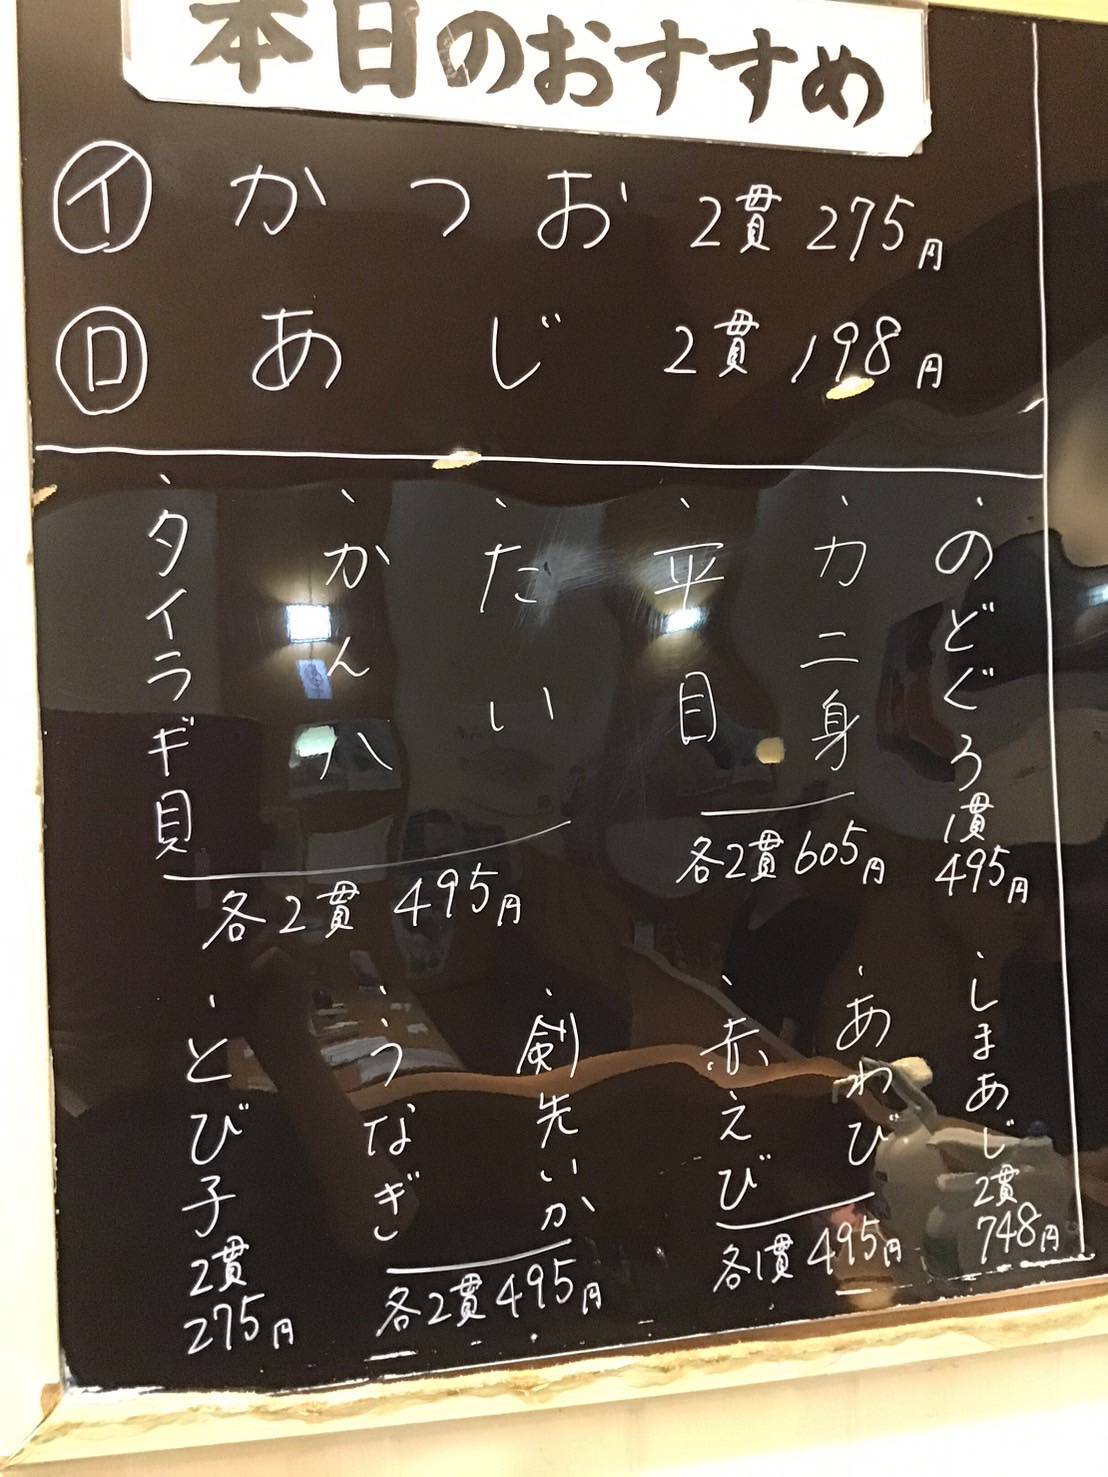 本日のおすすめ
イ かつお 2貫 275円
ロ あじ 2貫 198円
、のどぐろ 1貫 495円
、カニ身
、平目
各2貫 605円
、たい
、かんハ
、タイラギ貝
各2貫 495円
、しまあじ 2貫 748円
、あわび
、赤えび
各1貫 495円
、剣先いか
、うなぎ
各2貫 495円
、とび子 2貫 275円